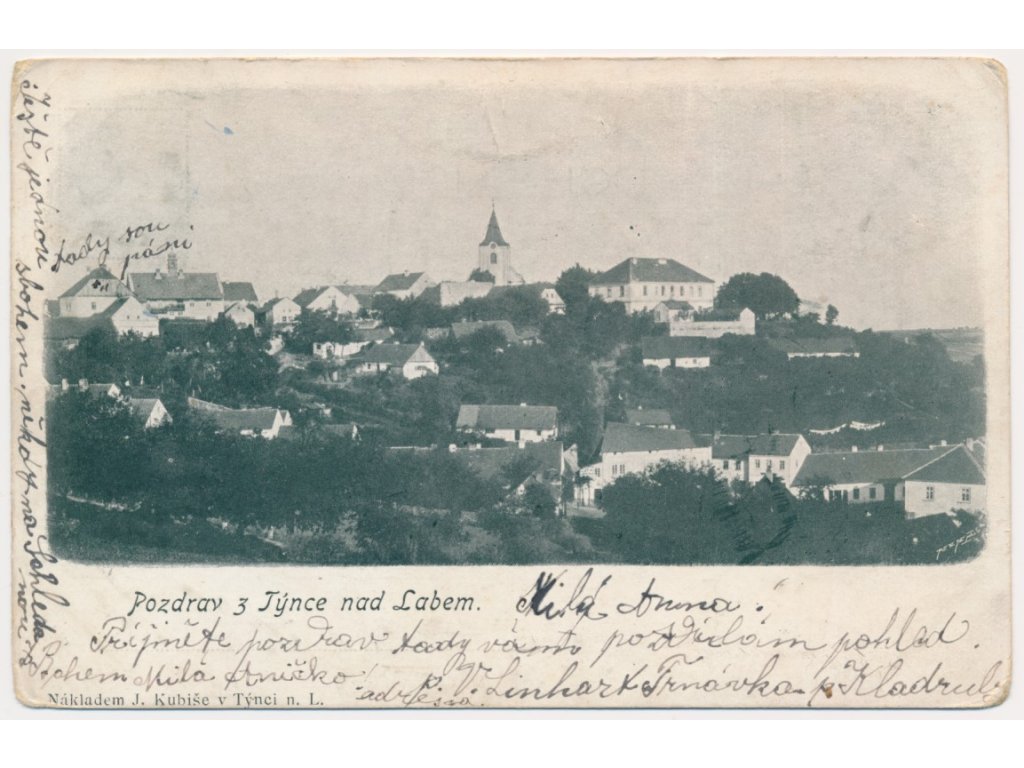 Ještě jednou sbohem někdy na Schleda
nou
tady sou
páni
Pozdrav z Týnce nad Labem.
Milá Anna!
Příjměte pozdrav tady vám pozdílám pohled.
S Bohem Milá Aničko!
adresa V. Linhart Trnávka p. Kladrub
Nákladem J. Kubiše v Týnci n. L.